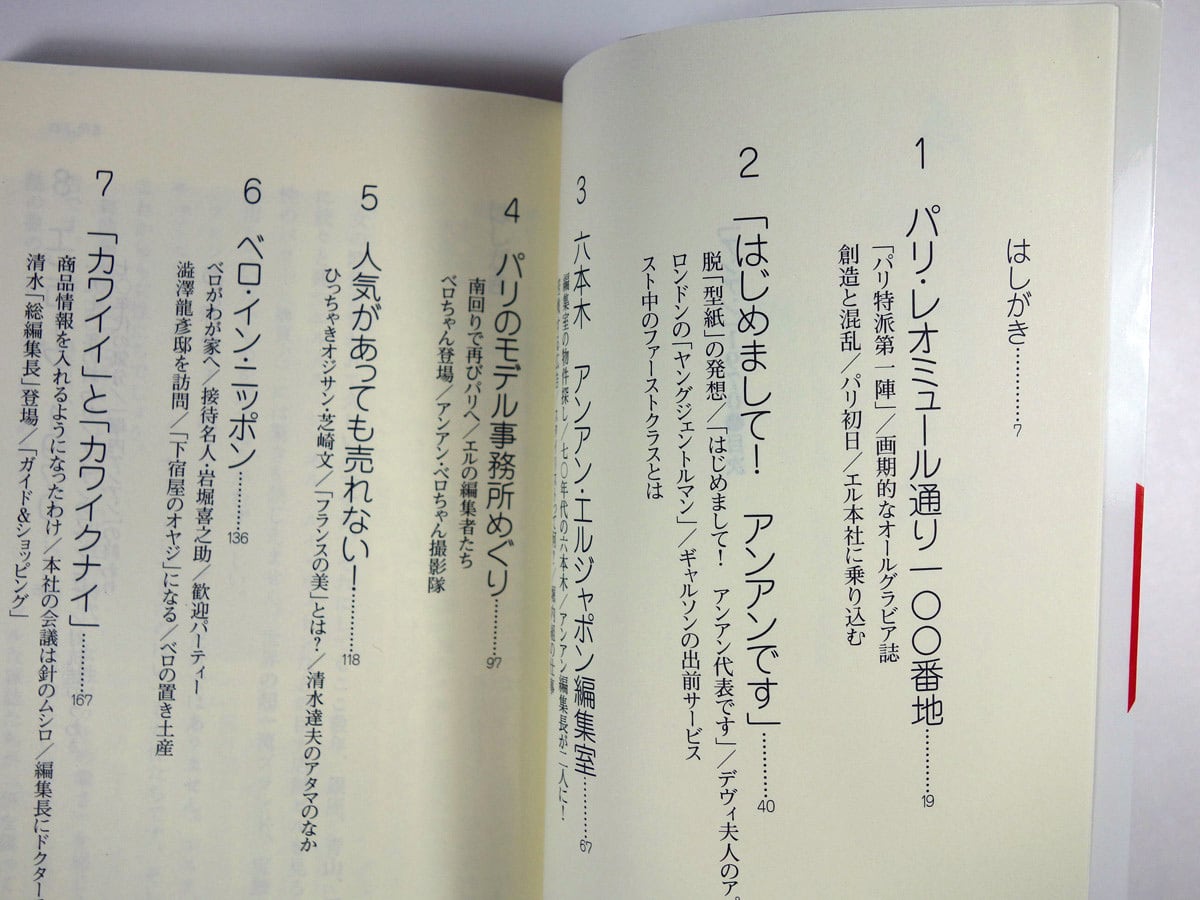 はしがき…………7
1 パリ・レオミュール通り一〇〇番地…………19
「パリ特派第一陣」／画期的なオールグラビア誌
創造と混乱／パリ初日／エル本社に乗り込む
2 「はじめまして！ アンアンです」…………40
脱「型紙」の発想／「はじめまして！ アンアン代表です」／デヴィ夫人のア
ロンドンの「ヤングジェントルマン」／ギャルソンの出前サービス
スト中のファーストクラスとは
3 六本木 アンアン・エルジャポン編集室…………67
編集室の物件探し／七〇年代の六本木／アンアン編集長が二人に！
4 パリのモデル事務所めぐり…………97
南回りで再びパリへ／エルの編集者たち
ベロちゃん登場／アンアン・ベロちゃん撮影隊
5 人気があっても売れない！…………118
ひっちゃきオジサン・芝崎文／「フランスの美」とは？／清水達夫のアタマのなか
6 ベロ・イン・ニッポン…………136
ベロがわが家へ／接待名人・岩堀喜之助／歓迎パーティー
澁澤龍彦邸を訪問／「下宿屋のオヤジ」になる／ベロの置き土産
7 「カワイイ」と「カワイクナイ」…………167
商品情報を入れるようになったわけ／本社の会議は針のムシロ／編集長にドクター
清水「総編集長」登場／「ガイド&ショッピング」